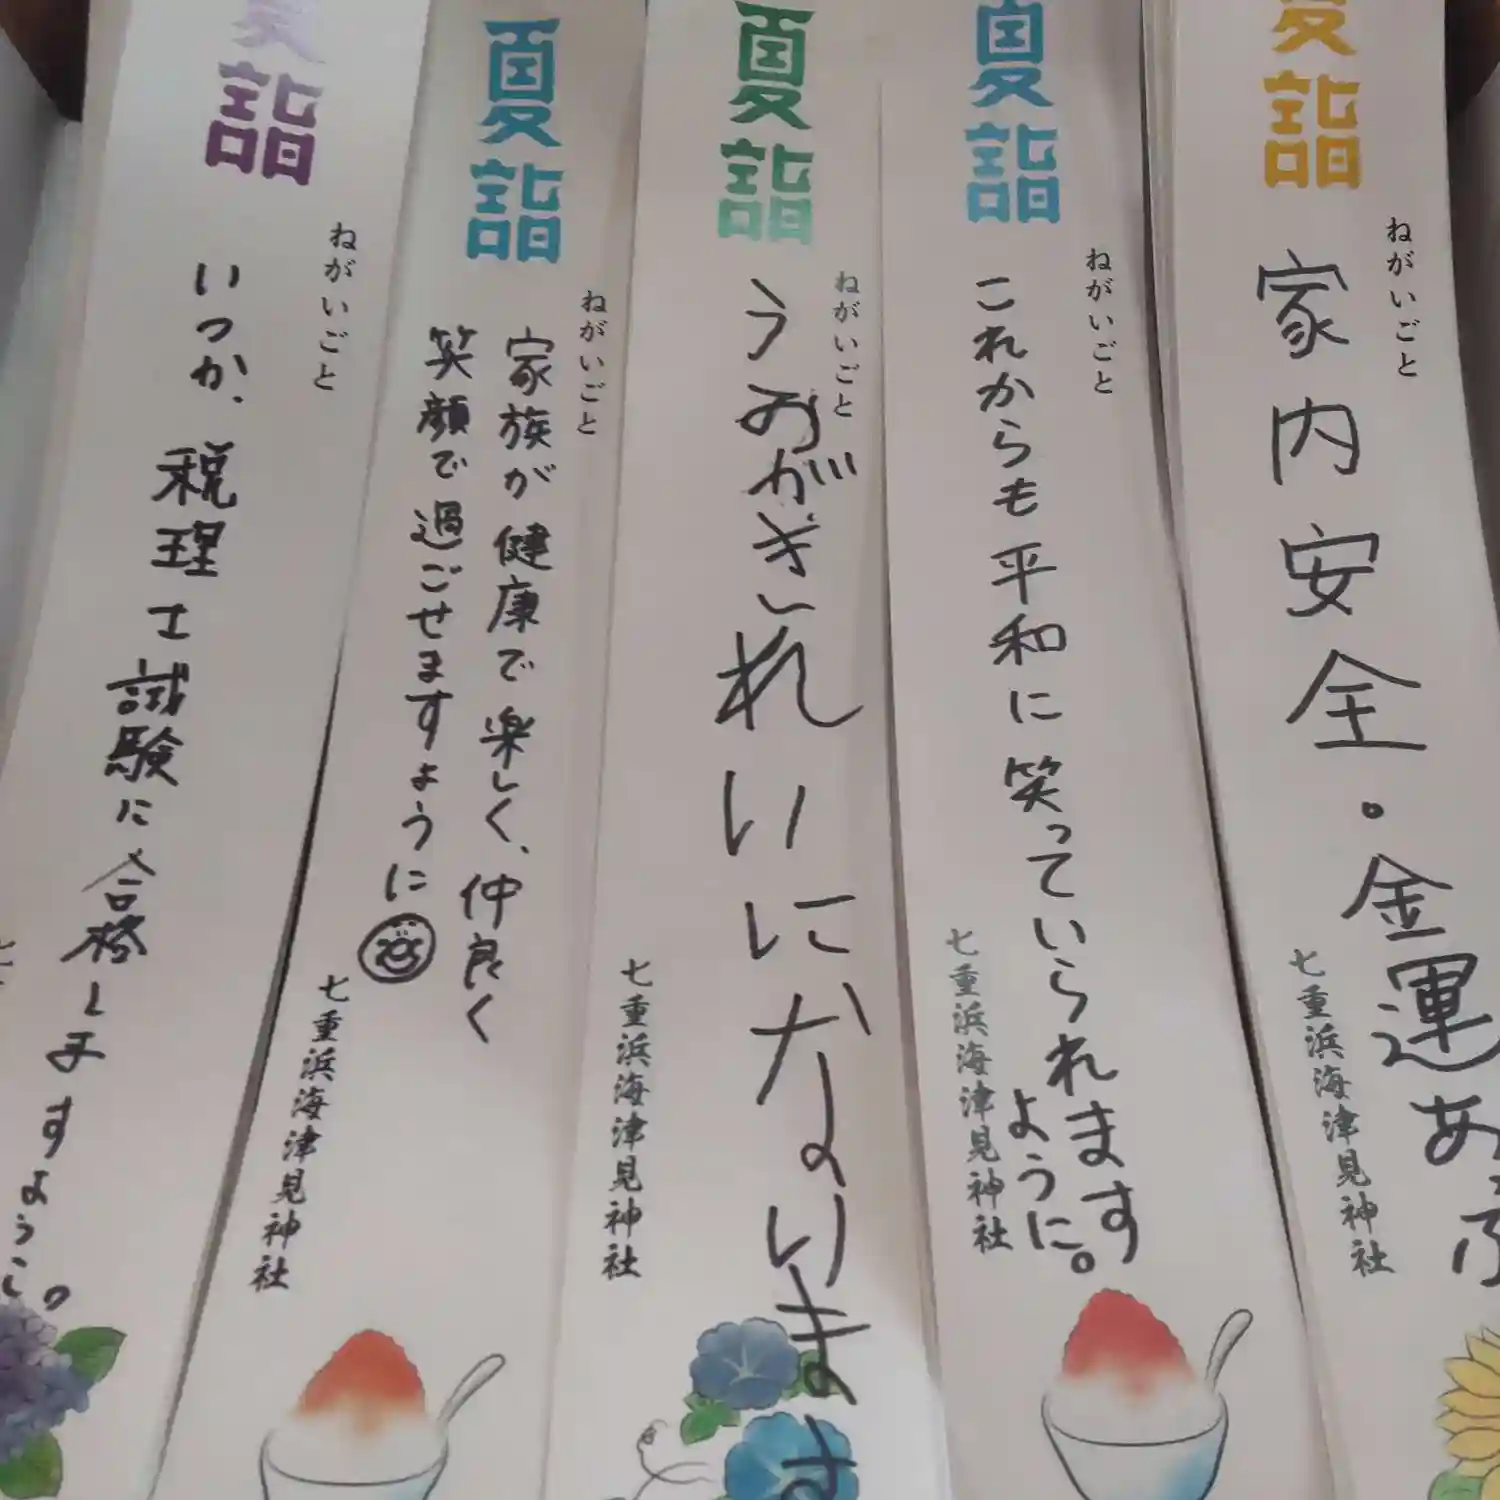 夏詣
ねがいごと
家内安全。金運あっぷ
七重浜海津見神社
夏詣
ねがいごと
これからも平和に笑っていられます
ように。
七重浜海津見神社
夏詣
ねがいごと
きれいになります
七重浜海津見神社
夏詣
ねがいごと
家族が健康で楽しく、仲良く
笑顔で過ごせますように
七重浜海津見神社
夏詣
ねがいごと
いつか、税理士試験に合格しますように。